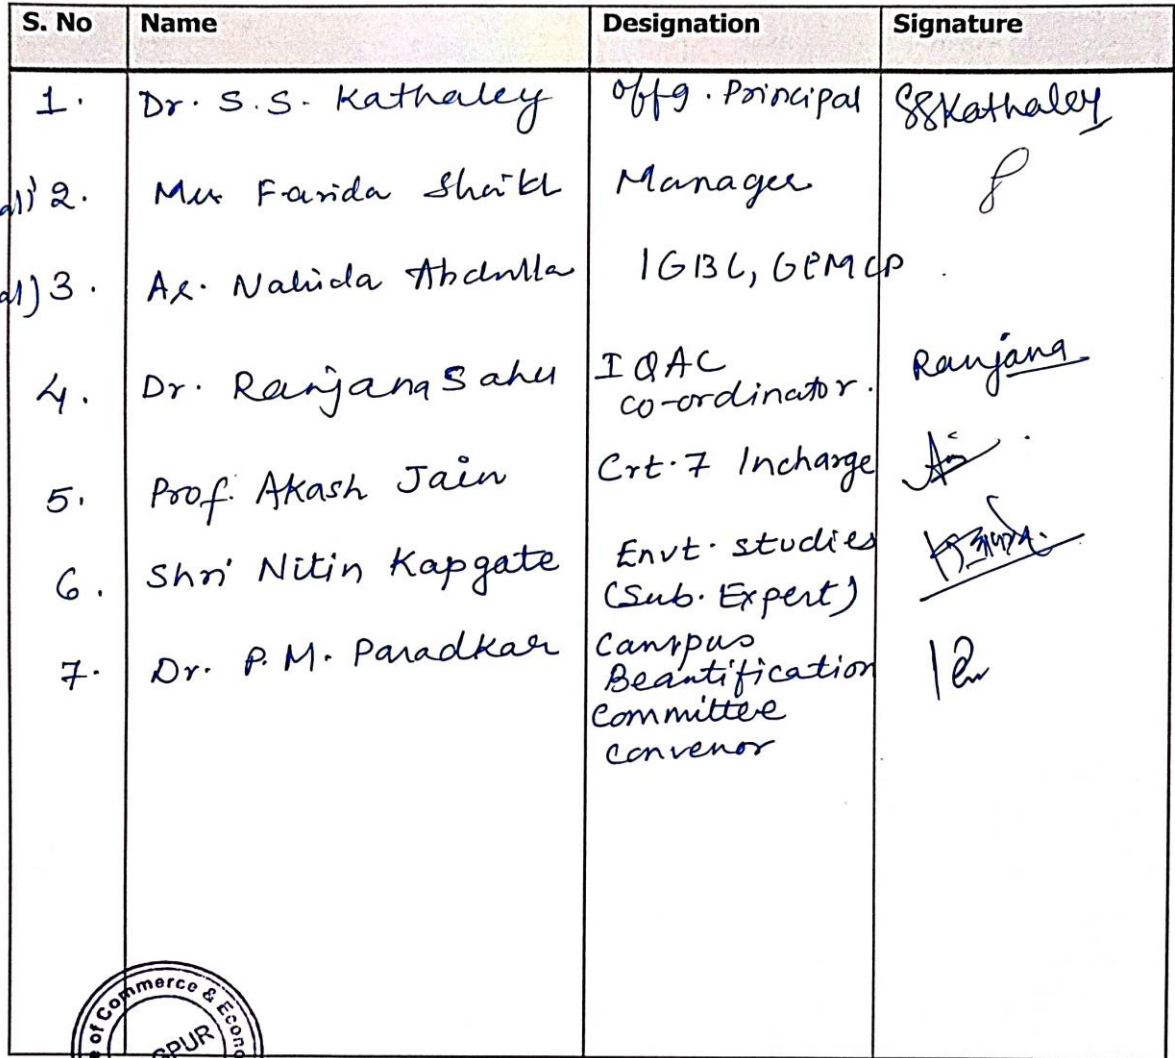 S. No Name Designation Signature
1. Dr. S.S. Kathaley Offg. Principal SSKathaley
2. Farida Shaikh Manager
3. Ar. Nahida Abdulla IGBC, GEM CP.
4. Dr. Ranjana Sahu IQAC Ranjana
co-ordinator.
5. Prof. Akash Jain Crt.7 Incharge
6. Shri Nitin Kapgate Envt. studies
(Sub. Expert)
7. Dr. P.M. Paradkar Campus
Beautification
Committee
Convenor
of Commerce &